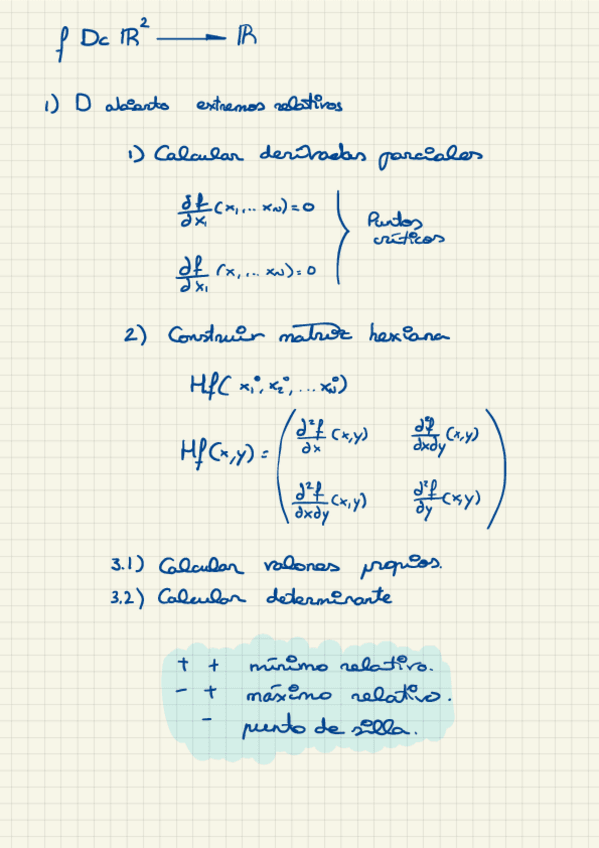 f D⊂ ℝ² ⟶ ℝ
1) D abierto extremos relativos
1) Calcular derivadas parciales
∂f/∂x₁ (x₁,.. xₙ) = 0
Puntos críticos
∂f/∂x₁ (x₁, ... xₙ) = 0
2) Construir matriz hexiana
Hf( x₁°, x₂°, ... xₙ°)
Hf(x,y) = ( ∂²f/∂x (x,y) ∂²f/∂x∂y (x,y)
∂²f/∂x∂y (x,y) ∂²f/∂y (x,y) )
3.1) Calcular valores propios.
3.2) Calcular determinante
+ + mínimo relativo.
- + máximo relativo.
- punto de silla.